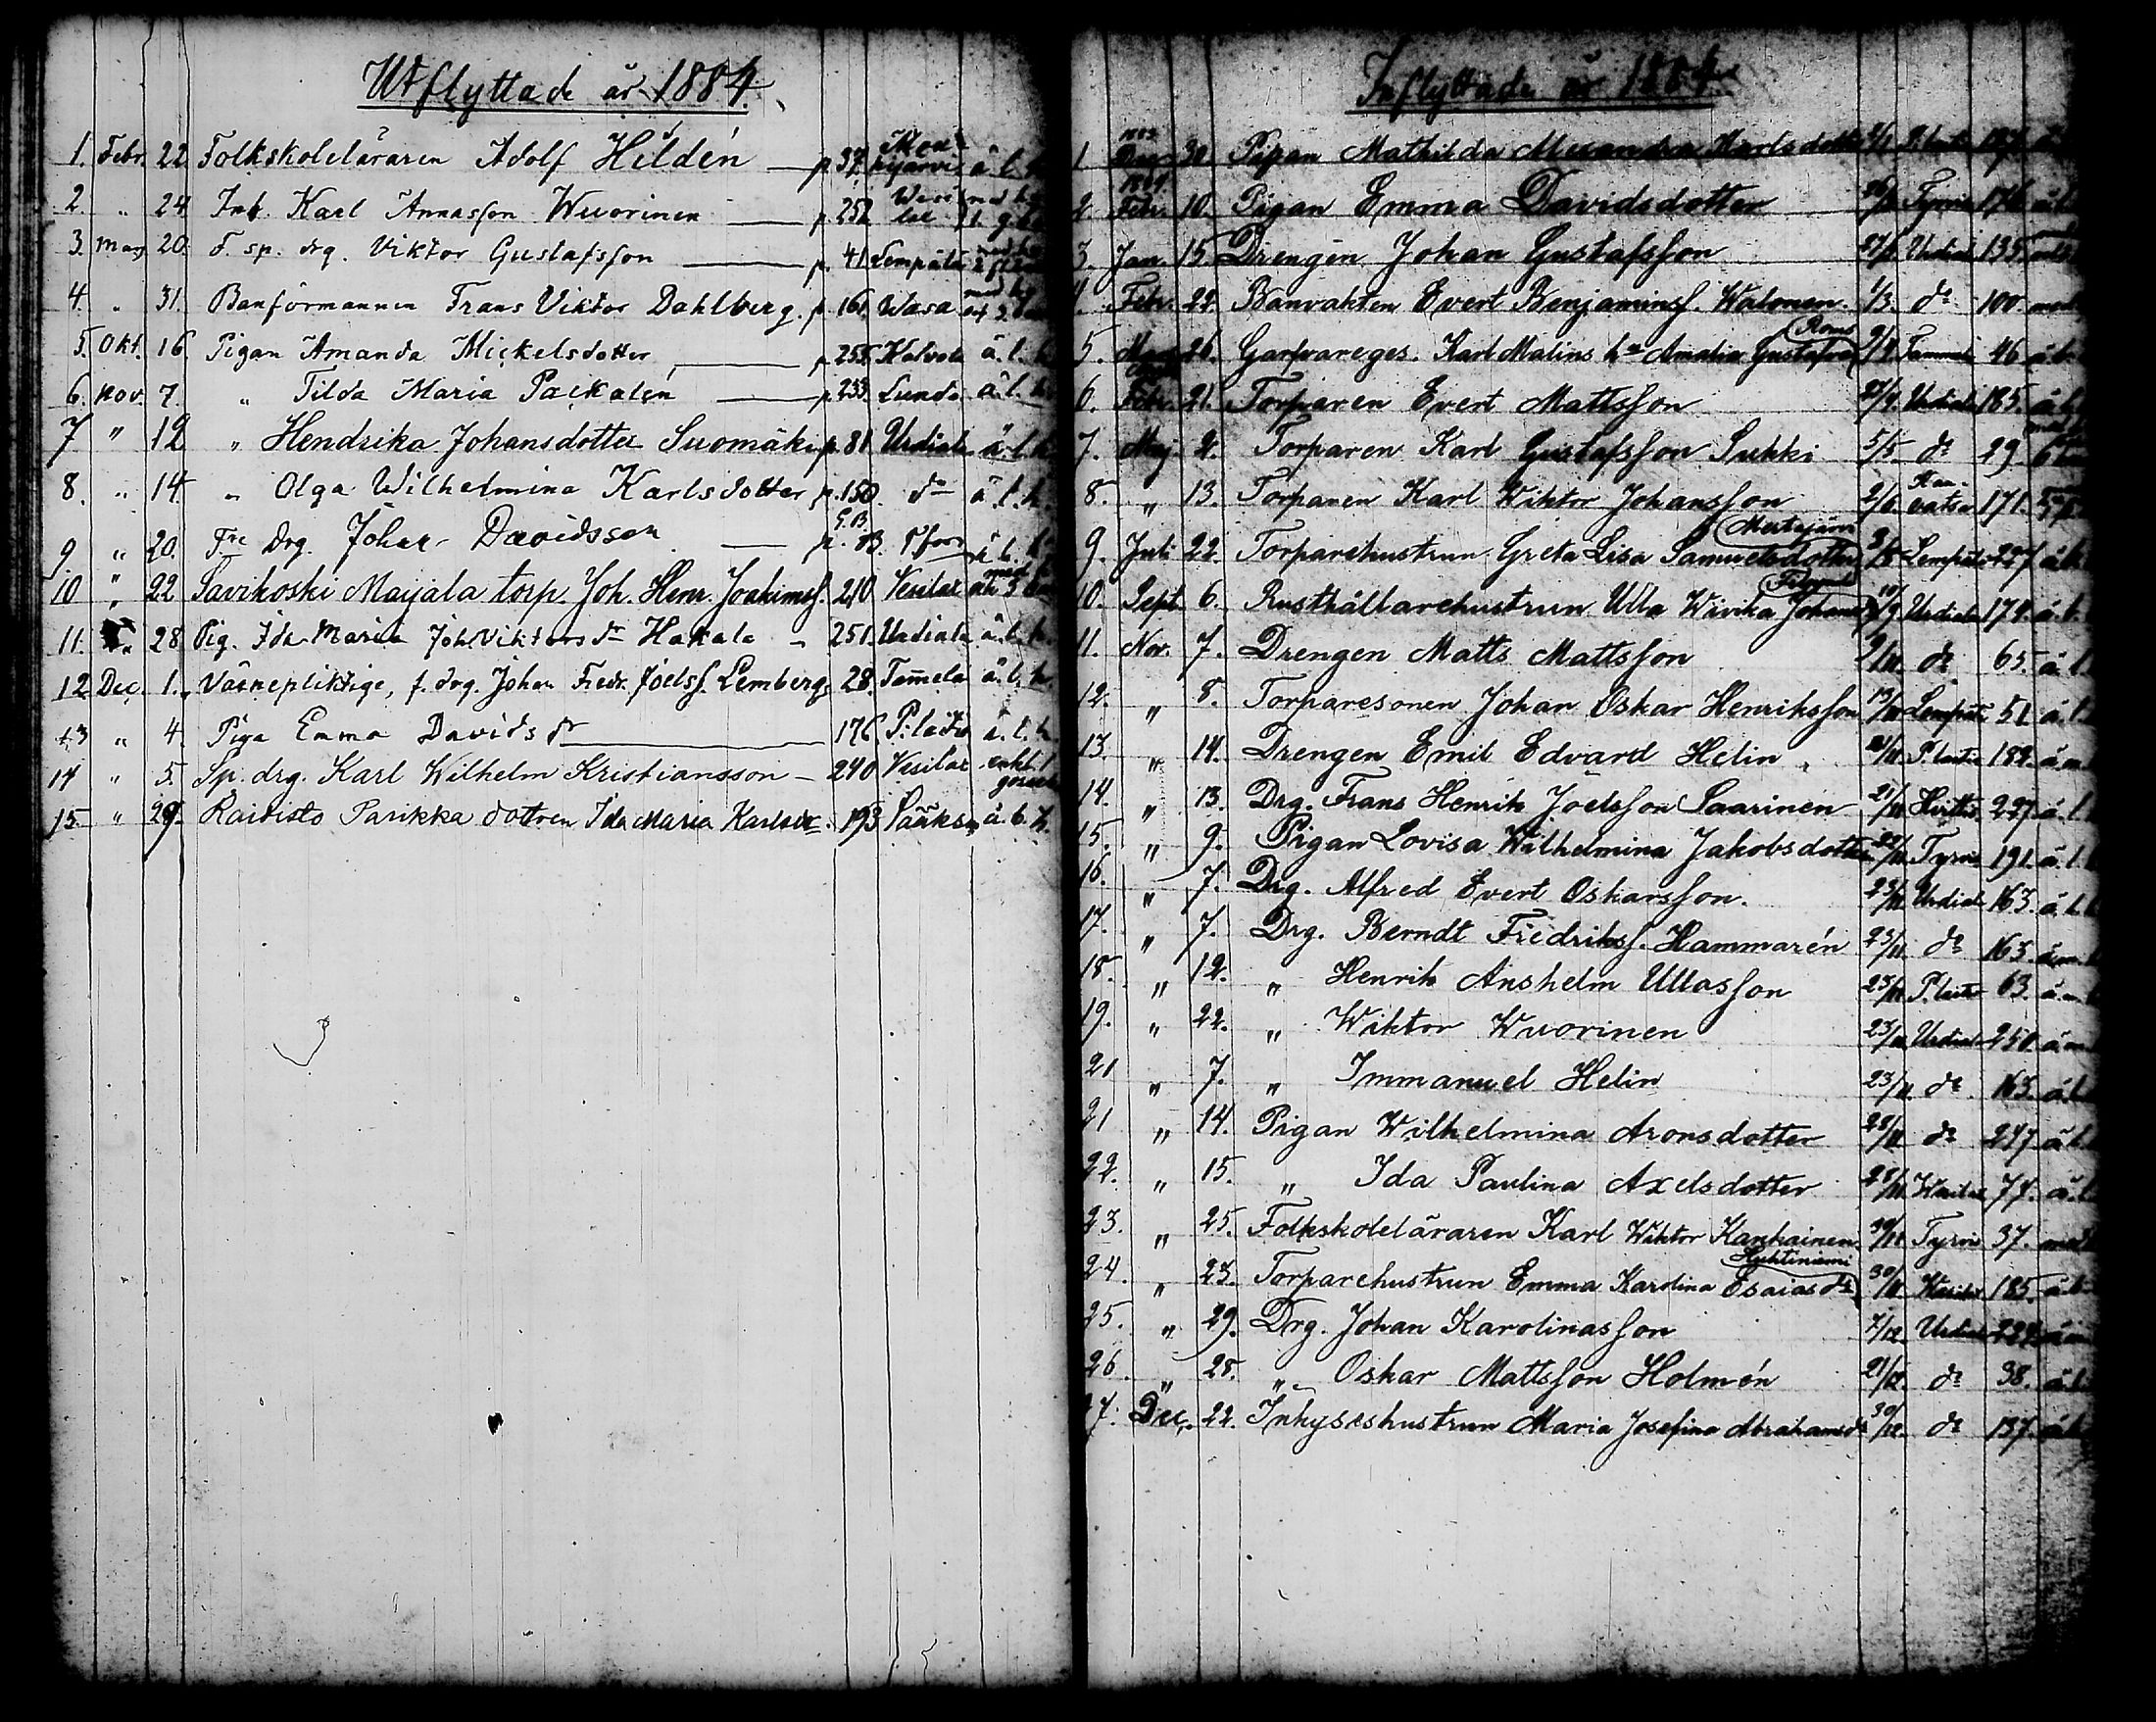 Utflyttade år 1884.
1. Febr. 22 Folkskoleläraren Adolf Hildén — p. 37. ä. l. h.
2 " 24 Inh. Karl Annasson Wuorinen — p. 252
3. Mars 20. F. sp. drg. Viktor Gustafsson — p. 41 Lempäla
4. " 31. Banförmannen Frans Viktor Dahlberg. p. 161. Wasa
5. Okt. 16. Pigan Amanda Mickelsdotter — p. 255. Kalvola ä. l. h.
6. Nov. 7. " Tilda Maria Packalén — p. 233 Lundo ä. l. h.
7 " 12 " Hendrika Johansdotter Suomäki p. 81 Urdiala ä. l. h.
8. " 14 " Olga Wilhelmina Karlsdotter p. 150. do ä. l. h.
9 " 20. Drg. Johan Davidsson — p. T:fors ä. l. h.
10 " 22 Savikoski Maijala torp. Joh. Henr. Joakimss. 210 Vesilax
11. " 28. Pig. Ida Maria Joh. Viktors dr Hakala - 251. Urdiala ä. l. h.
12 Dec. 1. Värnepliktige, f. drg. Johan Fredr. Joelss. Lemberg 28. Tam̅ela ä. l. h.
13 " 4. Piga Emma Davids dr — 176. P:laitio ä. l. h.
14 " 5. Sp. drg. Karl Wilhelm Kristiansson - 240 Vesilax
15. " 29. Raivisto Parikka dottren Ida Maria Karlsdr. 193 ä. l. h.
Inflyttade år 1884
1 1883 Dec. 30 Pigan Mathilda Alexandra Karlsdotter
2 1884. Febr. 10. Pigan Emma Davidsdotter Tyrvis 176 ä. l.
3. Jan. 15. Drengen Johan Gustafsson Urdiala 135
4. Febr. 22. Banvakten Evert Benjamins. Walonen. 1/3. do 100.
5. 26. Karl Malins hu Amalia Gustafsdr Tammela 46 ä. l.
6. Febr. 21. Torparen Evert Mattsson 27/4. Urdiala 185. ä. l.
7. Maj 2. Torparen Karl Gustafsson Sukki 5/5. do 29
8. " 13. Torparen Karl Wiktor Johansson 2/6 171.
9. Juli 22. Torparehustrun Greta Lisa Samuelsdotter Lempälä 227 ä. l.
10. Sept. 6. Rusthållarehustrun Ulla Wivika Johans Urdiala 174. ä. l.
11. Nov. 7. Drengen Matts Mattsson do 65. ä. l.
12. " 8. Torparesonen Johan Oskar Henriksson 13/11 Lempälä 51 ä. l.
13. " 14. Drengen Emil Edvard Helin P. laitio 182. ä. m.
14. " 13. Drg. Frans Henrik Joelsson Saarinen 21/11 Hvittis 227. ä. l.
15. " 9. Pigan Lovisa Wilhelmina Jakobsdotter Tyrvis 191. ä. l.
16. " 7. Drg. Alfred Evert Oskarsson. 23/11 Urdiala 163. ä. l.
17. " 7. Drg. Berndt Fredrikss. Hammarén 23/11. do 163.
18. " 12. " Henrik Anshelm Ullasson 23/11 P. laitio 63. ä. m.
19. " 22. " Wiktor Wuorinen 23/11 Urdiala 250. ä. m.
21 " 7. " Immanuel Helin 23/11. do 163. ä. l.
21 " 14. Pigan Wilhelmina Aronsdotter 28/11 do 247 ä. l.
22. " 15. " Ida Paulina Axelsdotter 28/11. 74. ä. l.
23. " 25. Folkskoleläraren Karl Wiktor Kankainen. 30/11 Tyrvis 37. med
24. " 23. Torparehustrun Emma Karolina Esaiasdr Huhtiniemi 30/11 185. ä. l.
25. " 29. Drg. Johan Karolinasson 7/12 Urdiala
26. " 28. " Oskar Mattsson Holmén 21/12. do 38. ä. l.
27. Dec. 22. Inhyseshustrun Maria Josefina Abrahamsdr 30/12. do 137. ä. l.